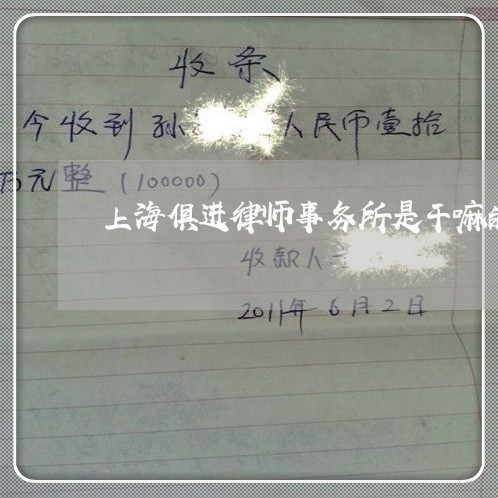 收条
今收到孙 人民币壹拾
万元整(100000)
上海俱进律师事务所是干嘛
收款人
2011年6月2日